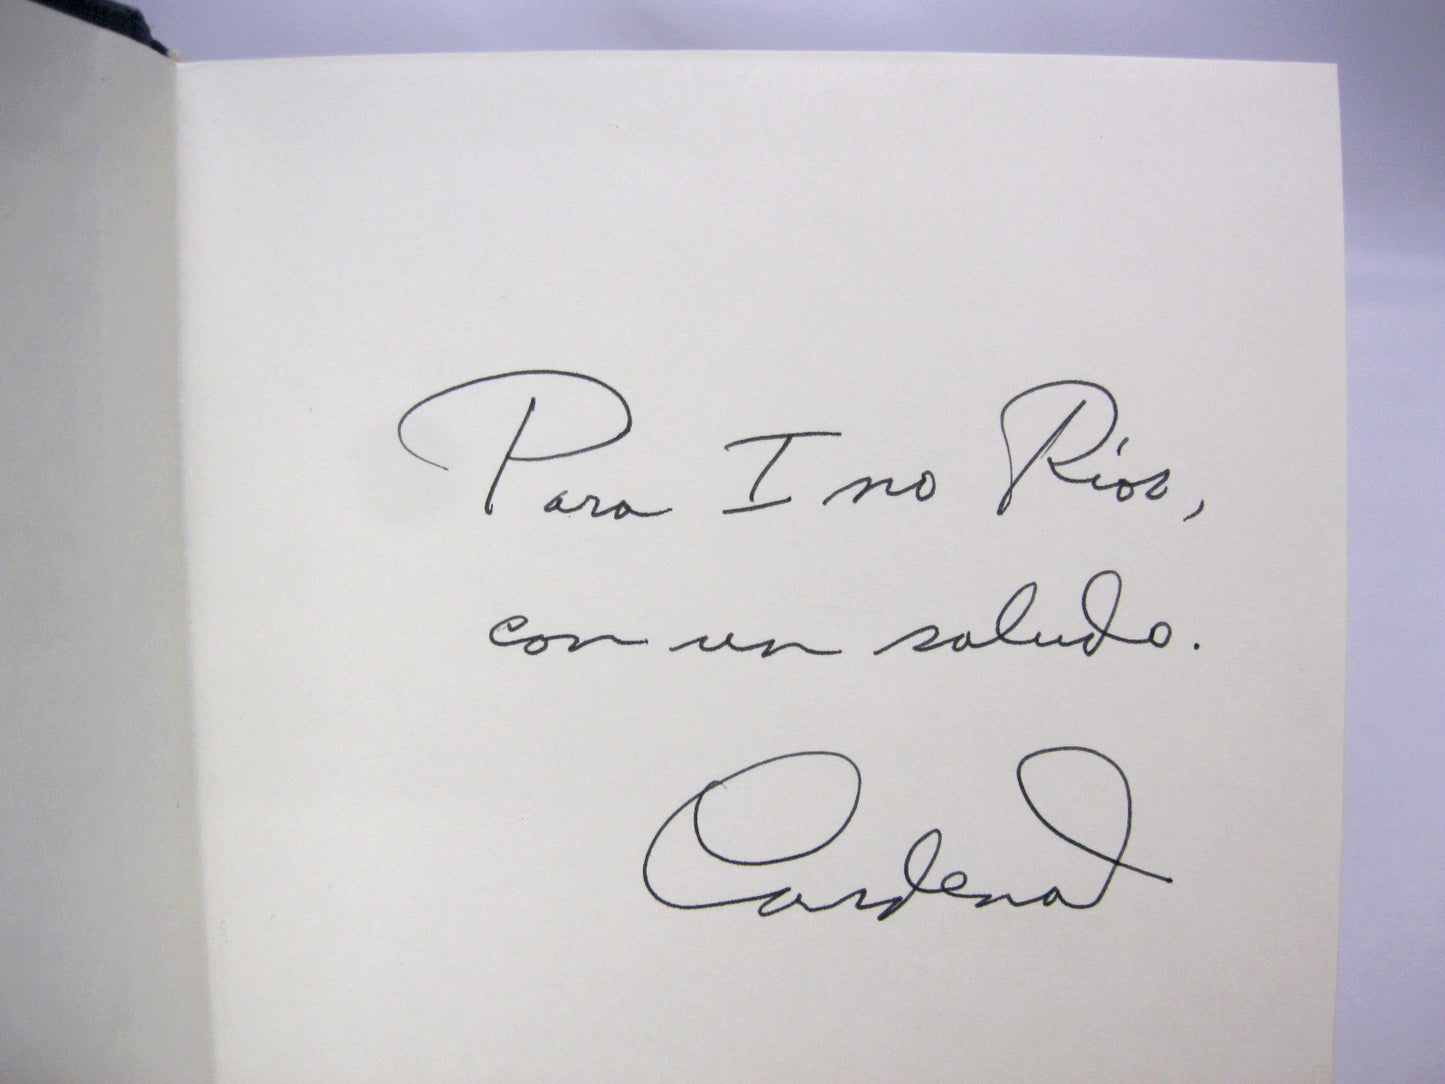 Para Ino Ríos,
con un saludo.
Cardenal